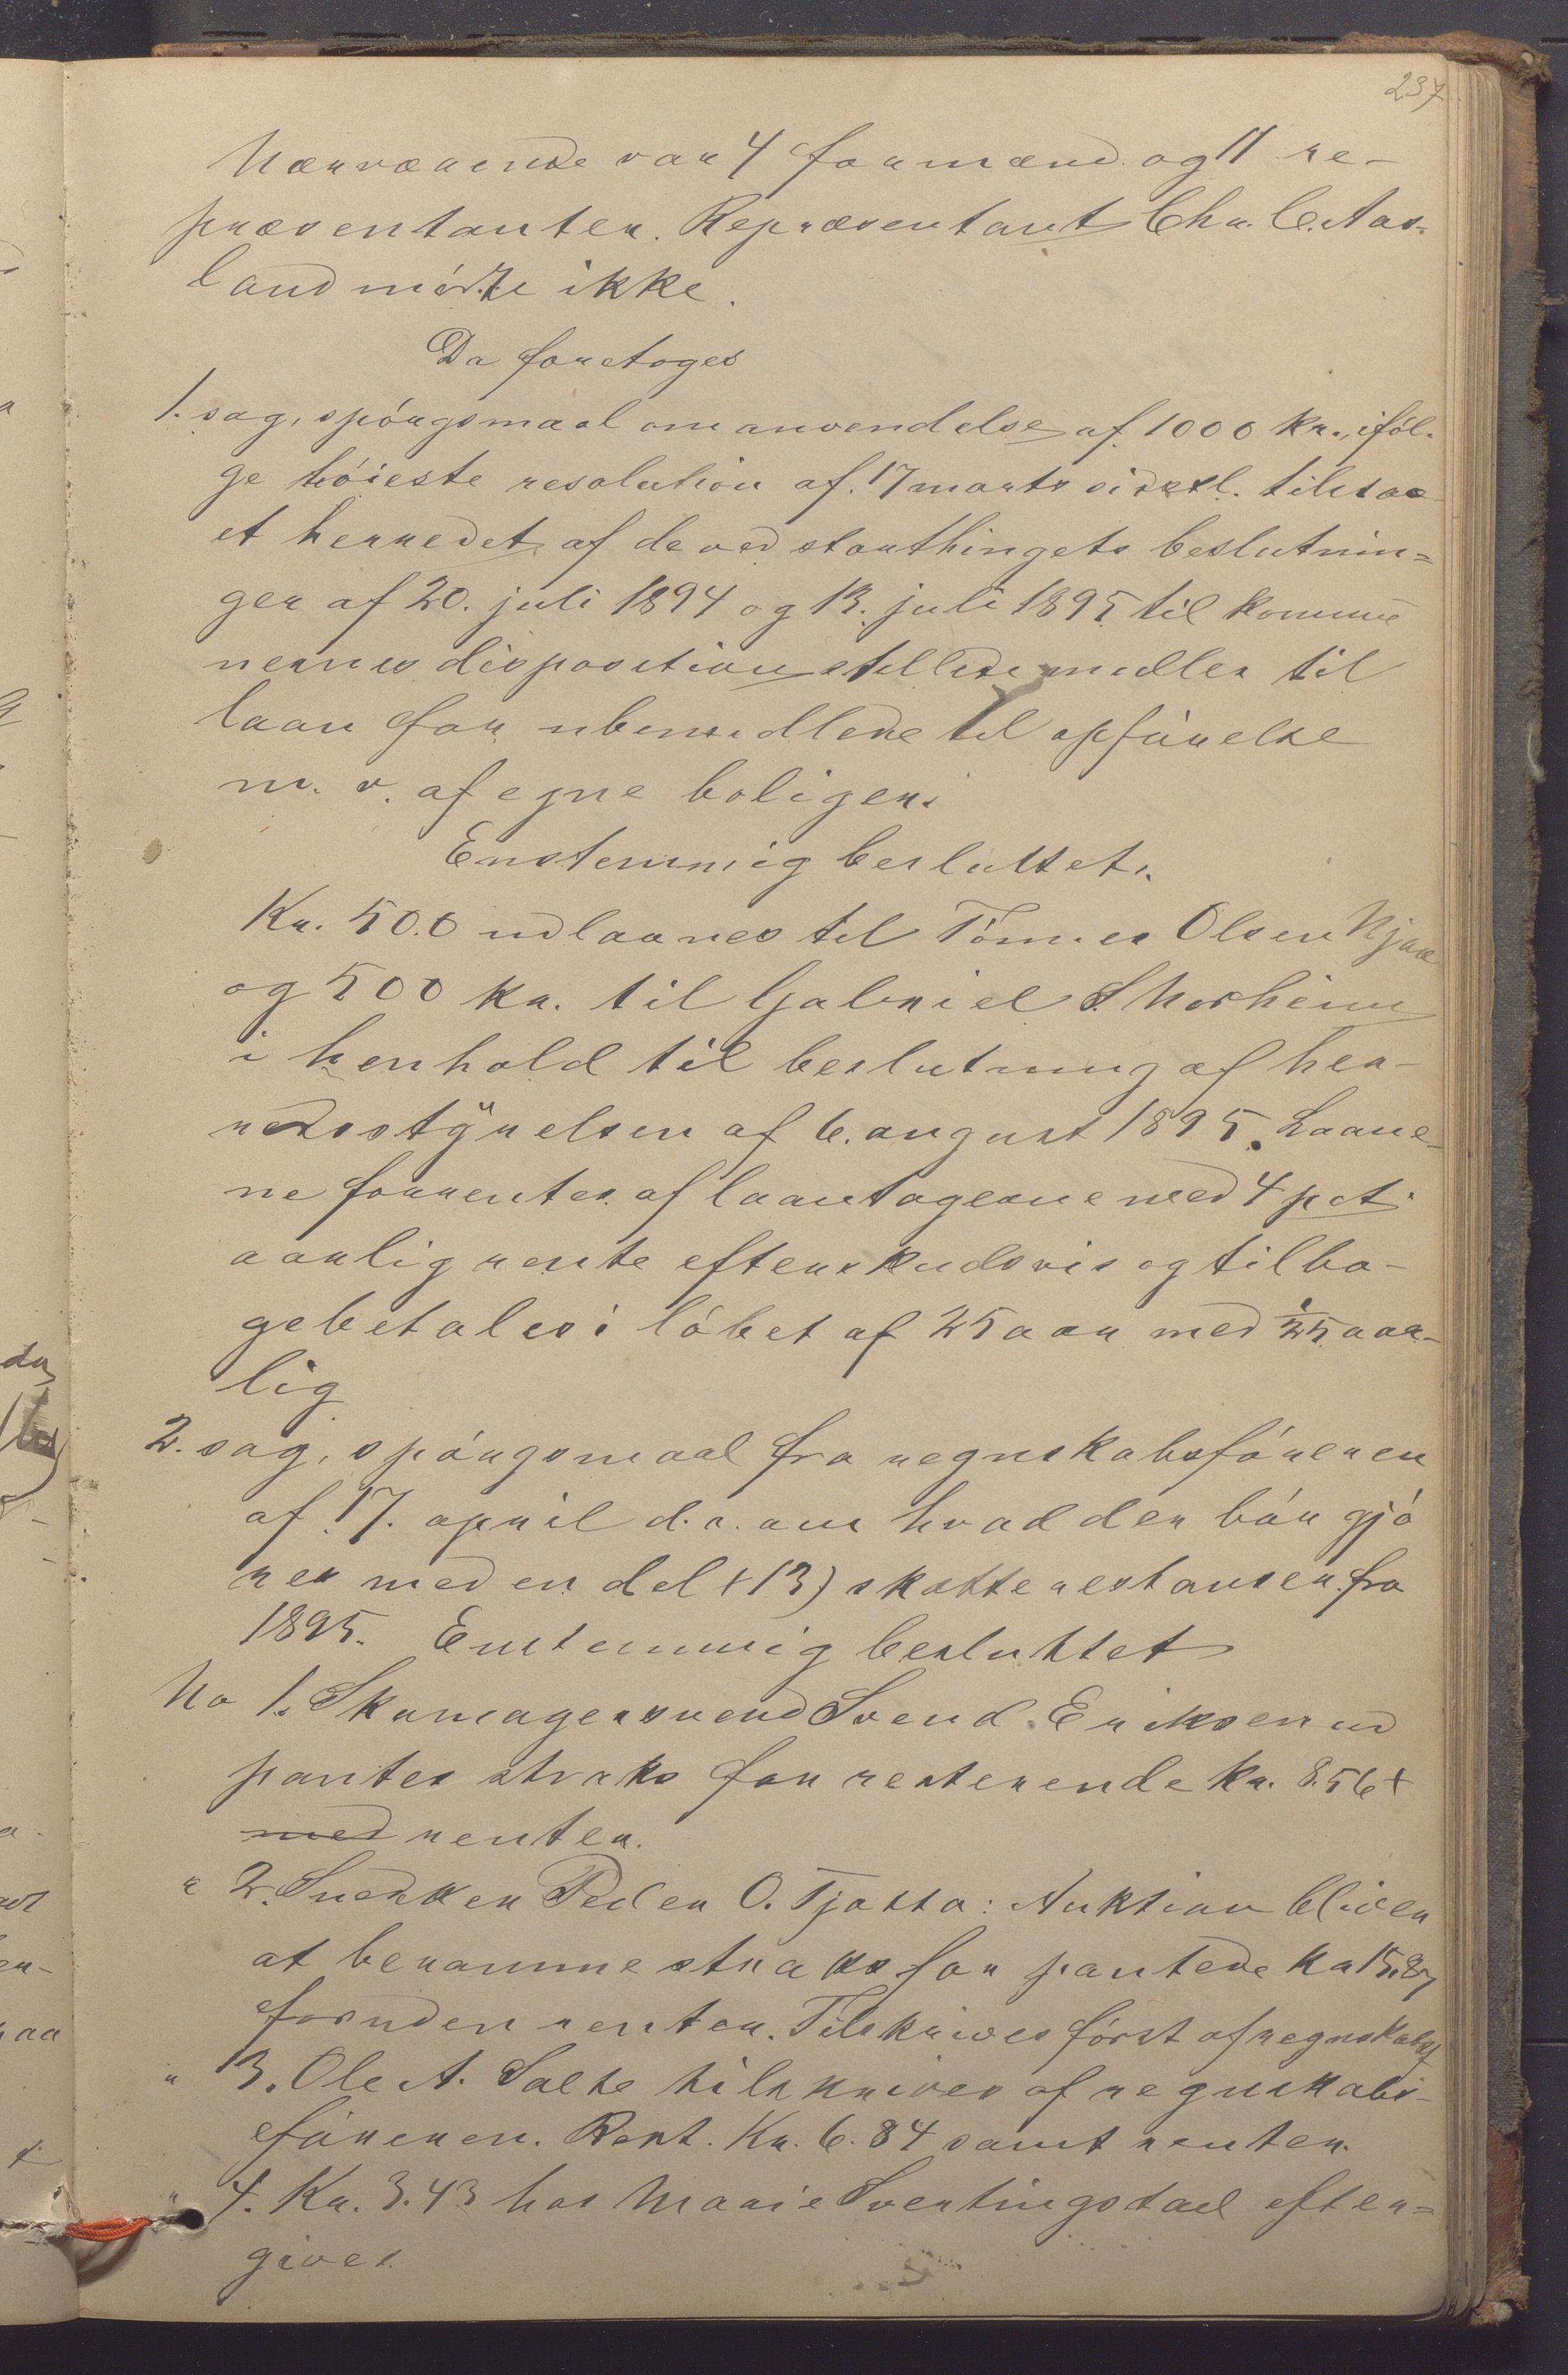 237
Nærværende var 4 formænd og 11 re-
præsentanter. Repræsentant Chr. C. Aas-
land mødte ikke.
Da foretoges
1. sag, spórgsmaal om anvendelse af 1000 kr., iføl-
ge høieste resolution af 17 marts sidstl. tilstaa-
et herredet af de ved storthingets beslutnin-
ger af 20. juli 1894 og 13. juli 1895 til kommu-
nernes disposition stillede midler til
laan for ubemidlede til opførelse
m. v. af egne boliger.
Enstemmig besluttet:
Kr. 500 udlaanes til Tönnes Olsen Njaa
og 500 kr. til Gabriel S. Norheim
i henhold til beslutning af her-
redsstyrelsen af 6. august 1895. Laane-
ne forrentes af laantagerne med 4 pct.
aarlig rente efterskudsvis og tilba-
gebetales i løbet af 25 aar med 1/25 aar-
lig
2. sag, spørgsmaal fra regnskabsføreren
af 17. april d. a. om hvad der bør gjø
res med en del (13) skatterestanser fra
1895. Enstemmig besluttet
No 1. Skomagersvend Svend Eriksen ud
pantes straks for resterende kr. 8.56 +
med renter.
" 2. Snedker Peder O. Tjøtta: Auktion bliver
at beramme straks for pantede kr 15.87
foruden renter. Tilskrives først af regnskabsf
" 3. Ole A. Salte tilskrives af regnskabs-
føreren. Rest. Kr. 6.84 samt renter.
" 4. Kr. 3.43 hos Marie Svertingstad efter-
gives.